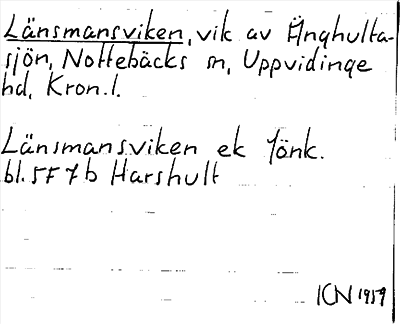 Länsmansviken, vik av Änghulta-
sjön, Nottebäcks sn, Uppvidinge
hd, Kron.l.
Länsmansviken ek Jönk.
bl. 5F7b Harshult
ICN 1959